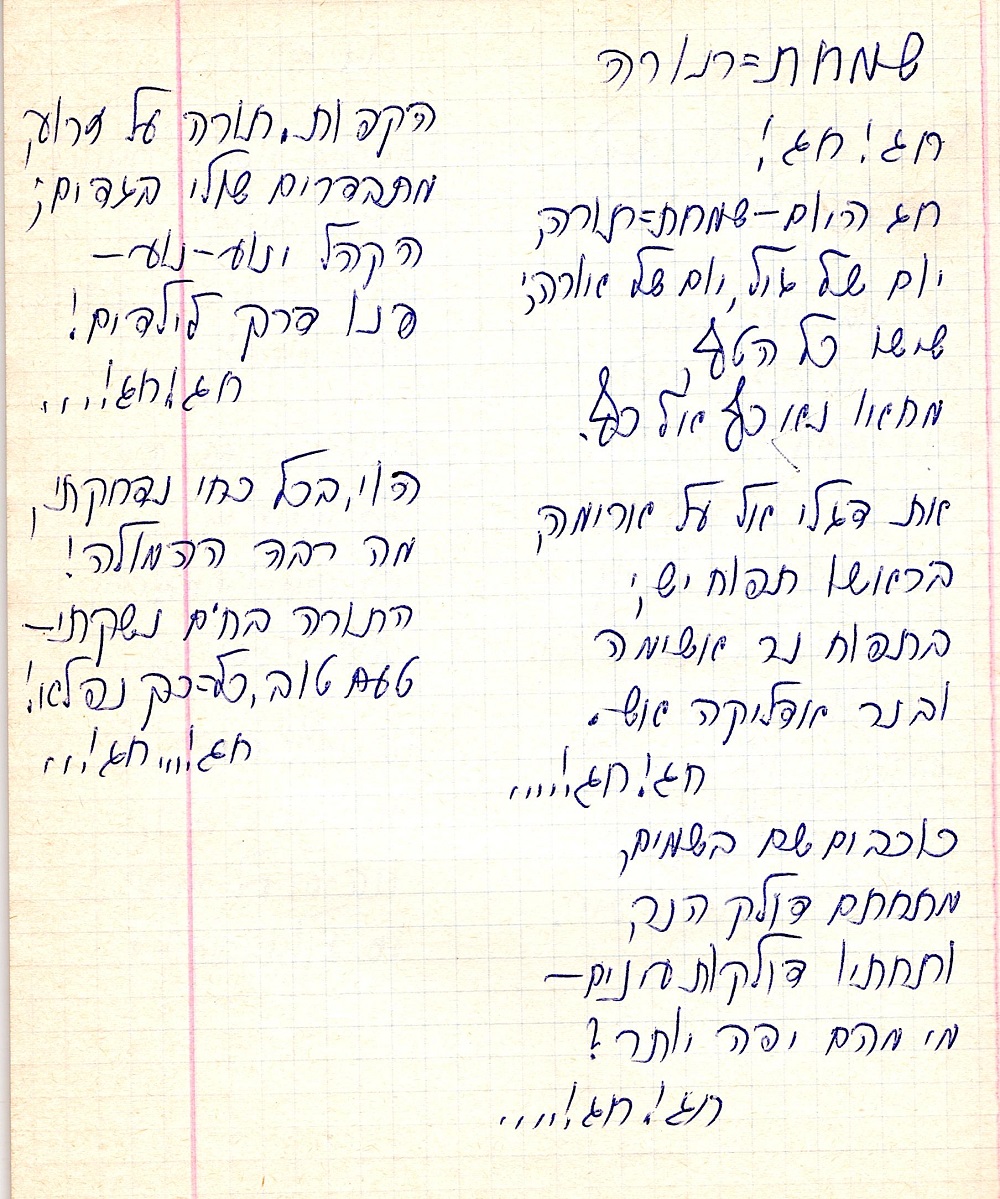 שמחת=תורה
חג! חג!
חג היום–שמחת=תורה,
יום של גיל, יום של אורה;
שישו כל הטף,
מחאו נא כף אל כף.
את דגלי אל על ארימה,
בראשו תפוח יש;
בתפוח נר אשימה
ובנר אדליקה אש.
חג! חג!.....
כוכבים שם בשמים,
מתחתם דולק הנר,
ותחתיו דולקות עינים–
מי מהם יפה יותר?
חג! חג!.....
הקפות. תורה על זרוע,
מתבדרים שולי בגדים;
הקהל ינוע-נוע–
פנו דרך לילדים!
חג! חג!....
הוי, בכל כחי נדחקתי,
מה רבה ההמולה!
התורה בחים נשקתי–
טעם טוב, כל=כך נפלא!
חג!... חג!...